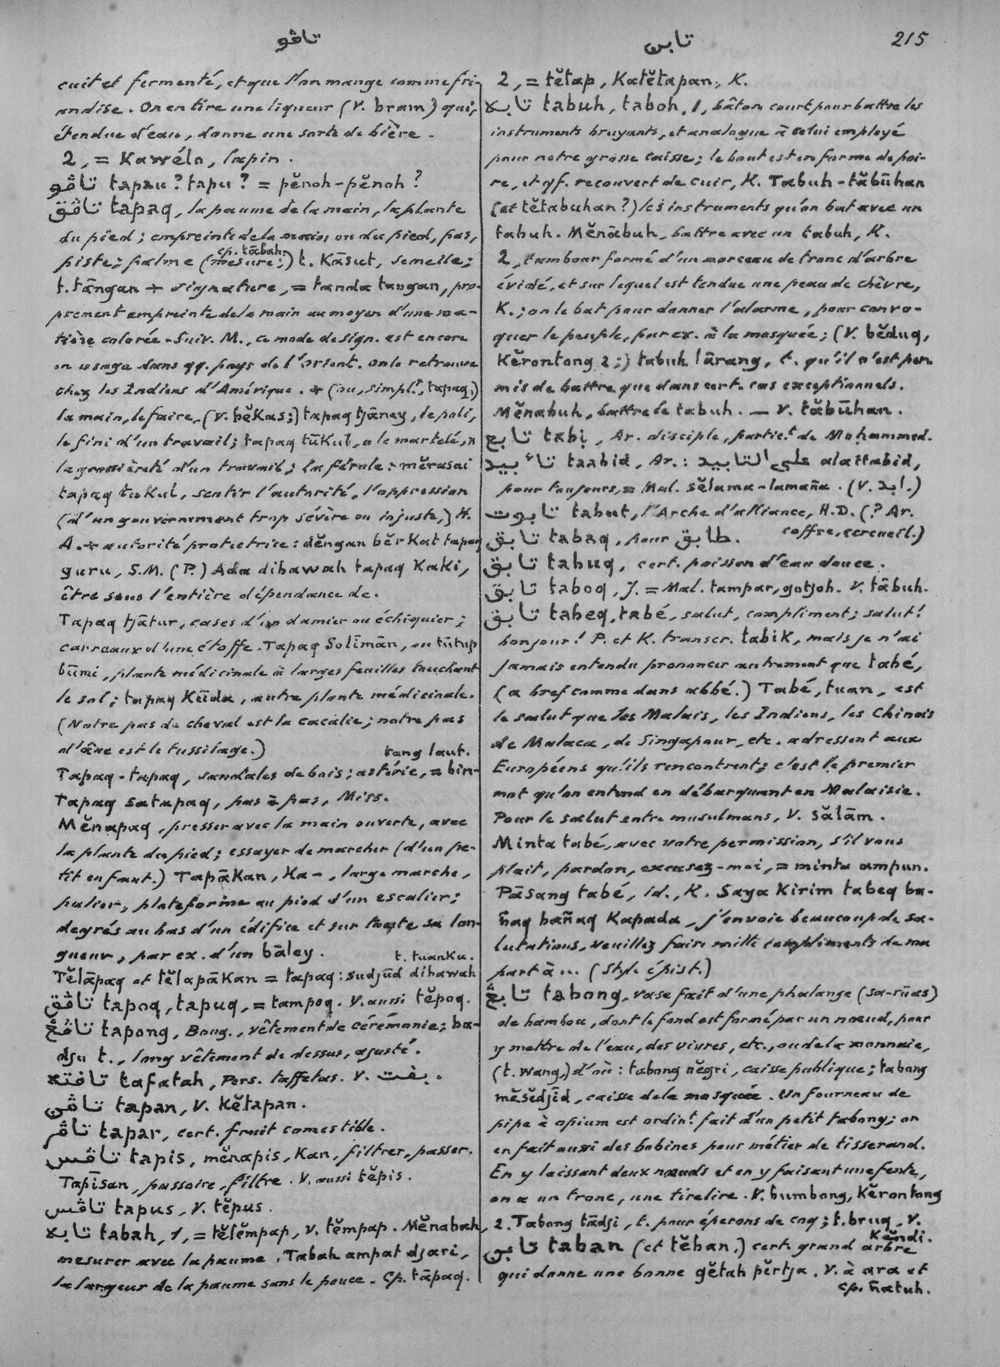 تاڤو
تابن
215
cuit et fermenté, et que l'on mange comme fri-
andise. On en tire une liqueur (V. bram) qui,
étendue d'eau, donne une sorte de bière.
2, = Kawélo, lapin.
تاڤو tapau? tapu? = pĕnoh-pĕnoh?
تاڤق tapaq, la paume de la main, la plante
du pied; empreinte de la main, ou du pied, pas,
piste; palme (mesure;) t. Kāsut, semelle;
cp. tābah.
t. tāngan + signature, = tanda tangan, pro-
prement empreinte de la main au moyen d'une ma-
tière colorée. Suiv. M., ce mode de sign. est encore
en usage dans qq. pays de l'Orient. On le retrouve
chez les Indiens d'Amérique. * (ou, simplt, tapaq,)
la main, le faire, (V. bĕkas;) tapaq tjāney, le poli,
le fini d'un travail; tapaq tūkul, a le martelé,
la grossièreté d'un travail; la férule: mĕrasai
tapaq tukul, sentir l'autorité, l'oppression
(d'un gouvernement trop sévère ou injuste,) H.
A. * autorité protectrice: dĕngan bĕrkat tapaq
guru, S.M. (P.) Ada dibawah tapaq Kaki,
être sous l'entière dépendance de.
Tapaq tjātur, cases d'un damier ou échiquier;
carreaux d'une étoffe. Tapaq Solīmān, ou tūtup
būmi, plante médicinale à larges feuilles touchant
le sol; tapaq Kūda, autre plante médicinale.
(Notre pas de cheval est la cacalie; notre pas
d'âne est le tussilage.)
tang laut.
Tapaq-tapaq, sandales de bois; astérie, = bin-
Tapaq satapaq, pas à pas, Miss.
Mĕnapaq, presser avec la main ouverte, avec
la plante du pied; essayer de marcher (d'un pe-
tit enfant.) Tapākan, Ka-, large marche,
palier, plateforme au pied d'un escalier;
degrés au bas d'un édifice et sur toute sa lon-
gueur, par ex. d'un bāley.
t. tuanku.
Tĕlāpaq et tĕlapākan = tapaq: sudjūd dibawah
تاڤق tapoq, tapuq, = tampoq. V. aussi tĕpoq.
تاڤڠ tapong, Boug., vêtement de cérémonie; ba-
dju t., long vêtement de dessus, ajusté.
تافته tafatah, Pers. taffetas. V. بفت.
تاڤن tapan, V. Kĕtapan.
تاڤر tapar, cert. fruit comestible.
تاڤس tapis, mĕnapis, Kan, filtrer, passer.
Tapīsan, passoire, filtre. V. aussi tĕpis.
تاڤس tapus, V. tĕpus.
تابه tabah, 1, = tĕtĕmpap, V. tĕmpap. Mĕnabah,
mesurer avec la paume. Tabah ampat djari,
la largeur de la paume sans le pouce. Cp. tāpaq.
2, = tĕtap, Katĕtapan, K.
تابه tabuh, taboh, 1, bâton court pour battre les
instruments bruyants, et analogue à celui employé
pour notre grosse caisse; le bout est en forme de poi-
re, et qf. recouvert de cuir, K. Tabuh-tăbūhan
(et tĕtabuhan?) les instruments qu'on bat avec un
tabuh. Mĕnābuh, battre avec un tabuh, K.
2, tambour formé d'un morceau de tronc d'arbre
évidé, et sur lequel est tendue une peau de chèvre,
K.; on le bat pour donner l'alarme, pour convo-
quer le peuple, par ex. à la mosquée; (V. bĕduq,
Kĕrontong 2;) tabuh lārang, t. qu'il n'est per-
mis de battre que dans cert. cas exceptionnels.
Mĕnabuh, battre le tabuh. — V. tăbūhan.
تابع tabi', Ar. disciple, partict. de Mohammed.
تأبيد taabid, Ar.: على التابيد alattabid,
pour toujours, = Mal. sĕlama-lamaña. (V. ابد.)
تابوت tabut, l'Arche d'alliance, H.D. (? Ar.
coffre, cercueil.)
تابق tabaq, pour طابق.
تابق tabuq, cert. poisson d'eau douce.
تابق taboq, J. = Mal. tampar, gotjoh. V. tābuh.
تابق tabeq, tabé, salut, compliment; salut!
bonjour! P. et K. transcr. tabik, mais je n'ai
jamais entendu prononcer autrement que tabé,
(a bref comme dans abbé.) Tabé, tuan, est
le salut que les Malais, les Indiens, les Chinois
de Malaca, de Singapour, etc. adressent aux
Européens qu'ils rencontrent; c'est le premier
mot qu'on entend en débarquant en Malaisie.
Pour le salut entre musulmans, V. sălām.
Minta tabé, avec votre permission, s'il vous
plait, pardon, excusez-moi, = minta ampun.
Pāsang tabé, id., K. Saya Kirim tabeq ba-
ñaq bañaq Kapada, j'envoie beaucoup de sa-
lutations, veuillez faire mille compliments de ma
part à ... (style épist.)
تابڠ tabong, vase fait d'une phalange (sa-rūas)
de bambou, dont le fond est formé par un nœud, pour
y mettre de l'eau, des vivres, etc., ou de la monnaie,
(t. wang,) d'où: tabong nĕgri, caisse publique; tabong
mĕsĕdjīd, caisse de la mosquée. Un fourneau de
pipe à opium est ordint. fait d'un petit tabong; on
en fait aussi des bobines pour métier de tisserand.
En y laissant deux nœuds et en y faisant une fente,
on a un tronc, une tirelire. V. bumbong, Kĕrontong
2. Tabong tādji, t. pour éperons de coq; t. bruq, V.
Kĕndi.
تابن taban (et tĕban.) cert. grand arbre
qui donne une bonne gĕtah pĕrtja. V. à ara et
cp. ñatuh.